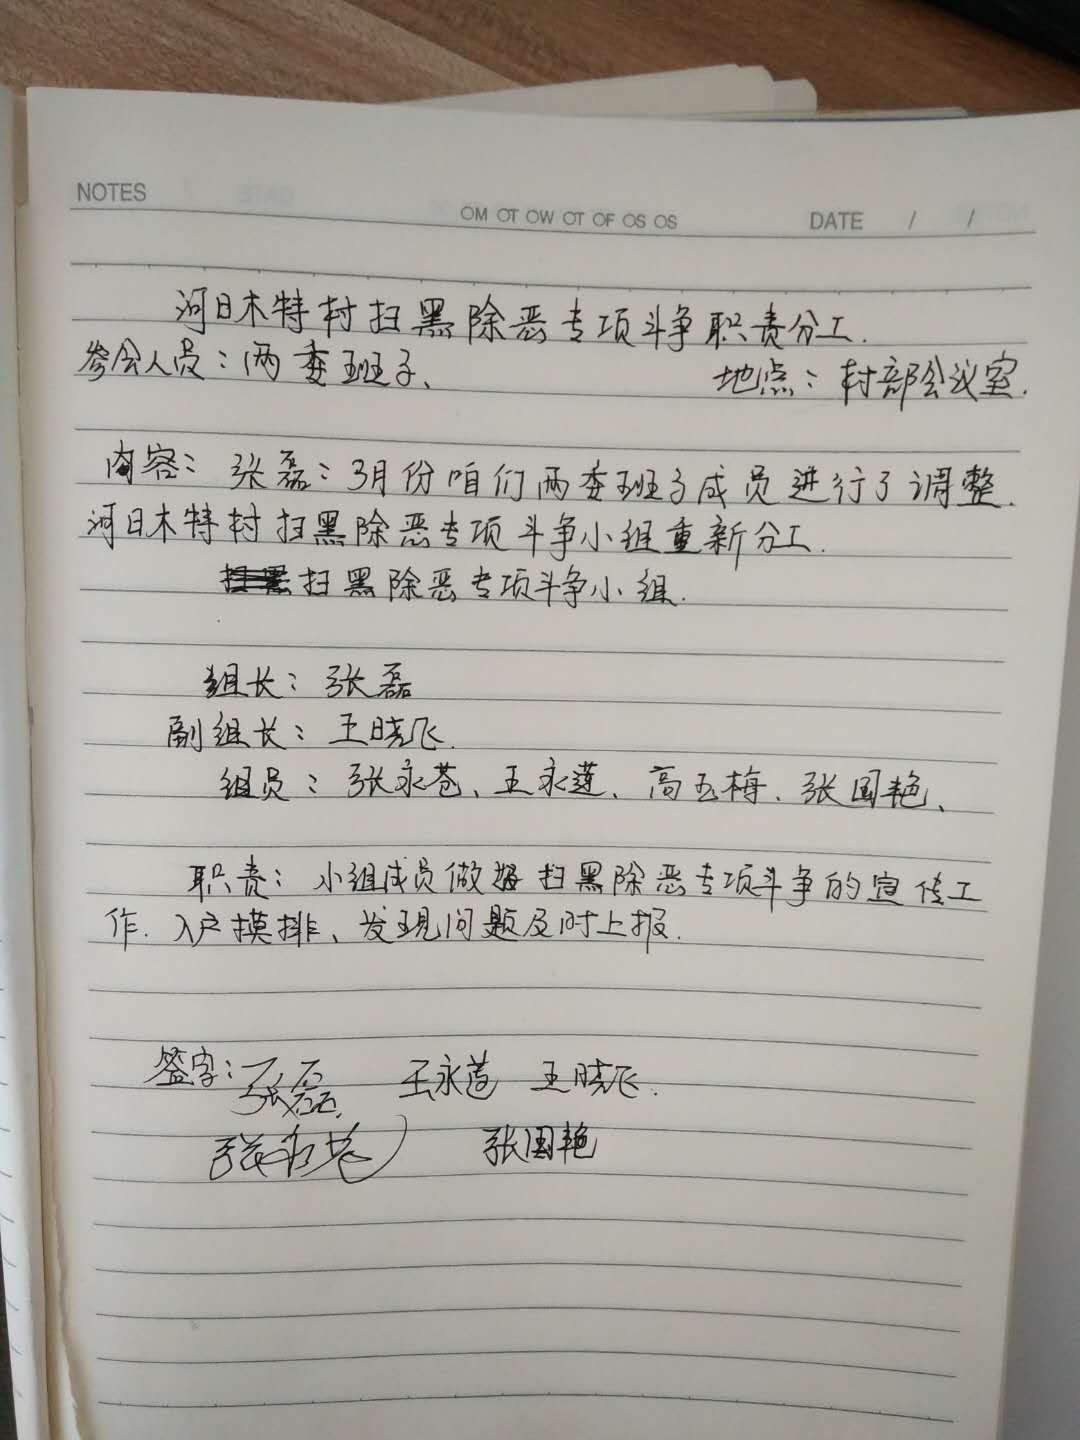 NOTES
OM OT OW OT OF OS OS
DATE / /
河日木特村扫黑除恶专项斗争职责分工.
参会人员：两委班子、 地点：村部会议室.
内容：张磊：3月份咱们两委班子成员进行了调整.
河日木特村扫黑除恶专项斗争小组重新分工.
扫黑除恶专项斗争小组.
组长：张磊
副组长：王晓飞.
组员：张永苍、王永莲、高玉梅、张国艳、
职责：小组成员做好扫黑除恶专项斗争的宣传工
作.入户摸排、发现问题及时上报.
签字：张磊 王永莲 王晓飞.
张永苍 张国艳